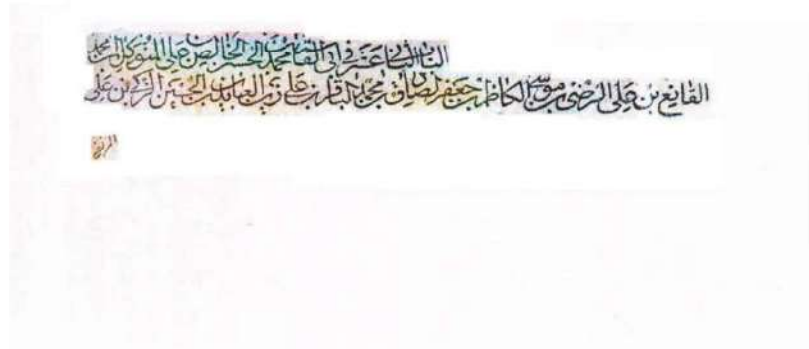 الباب الثاني عشر في ابى القاسم محمد بن الحسن الخالص بن على المتوكل بن محمد
القانع بن على الرضى بن موسى الكاظم بن جعفر الصادق بن محمد الباقر بن على زين العابدين بن الحسين الزكى بن على